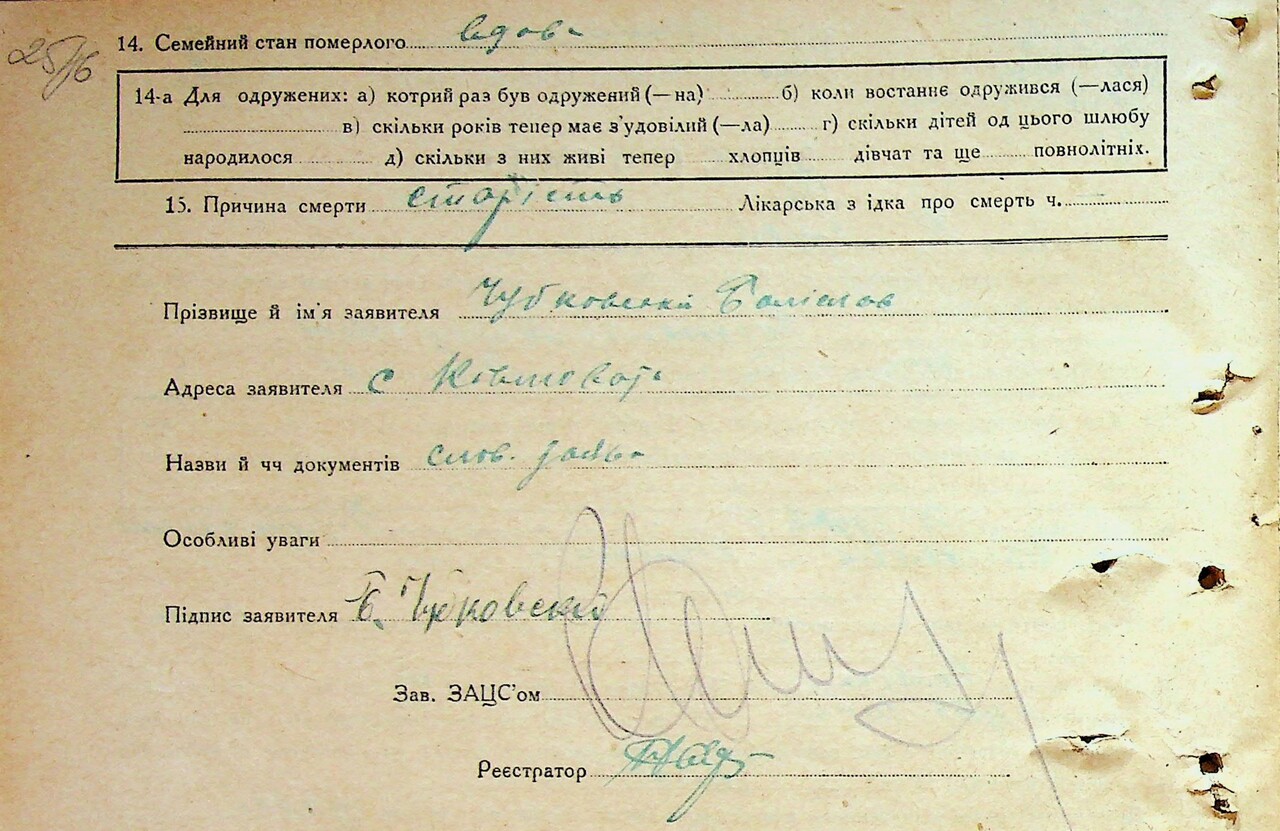 25/16
14. Семейний стан померлого вдова
14-а Для одружених: а) котрий раз був одружений (—на) б) коли востаннє одружився (—лася)
в) скільки років тепер має з'удовілий (—ла) г) скільки дітей од цього шлюбу
народилося д) скільки з них живі тепер хлопців дівчат та ще повнолітніх.
15. Причина смерти старість Лікарська з ідка про смерть ч.
Прізвище й ім'я заявителя Чубковський Болїслов
Адреса заявителя с
Назви й чч документів слов. заява
Особливі уваги
Підпис заявителя Б. Чубковский
Зав. ЗАЦС'ом
Реєстратор